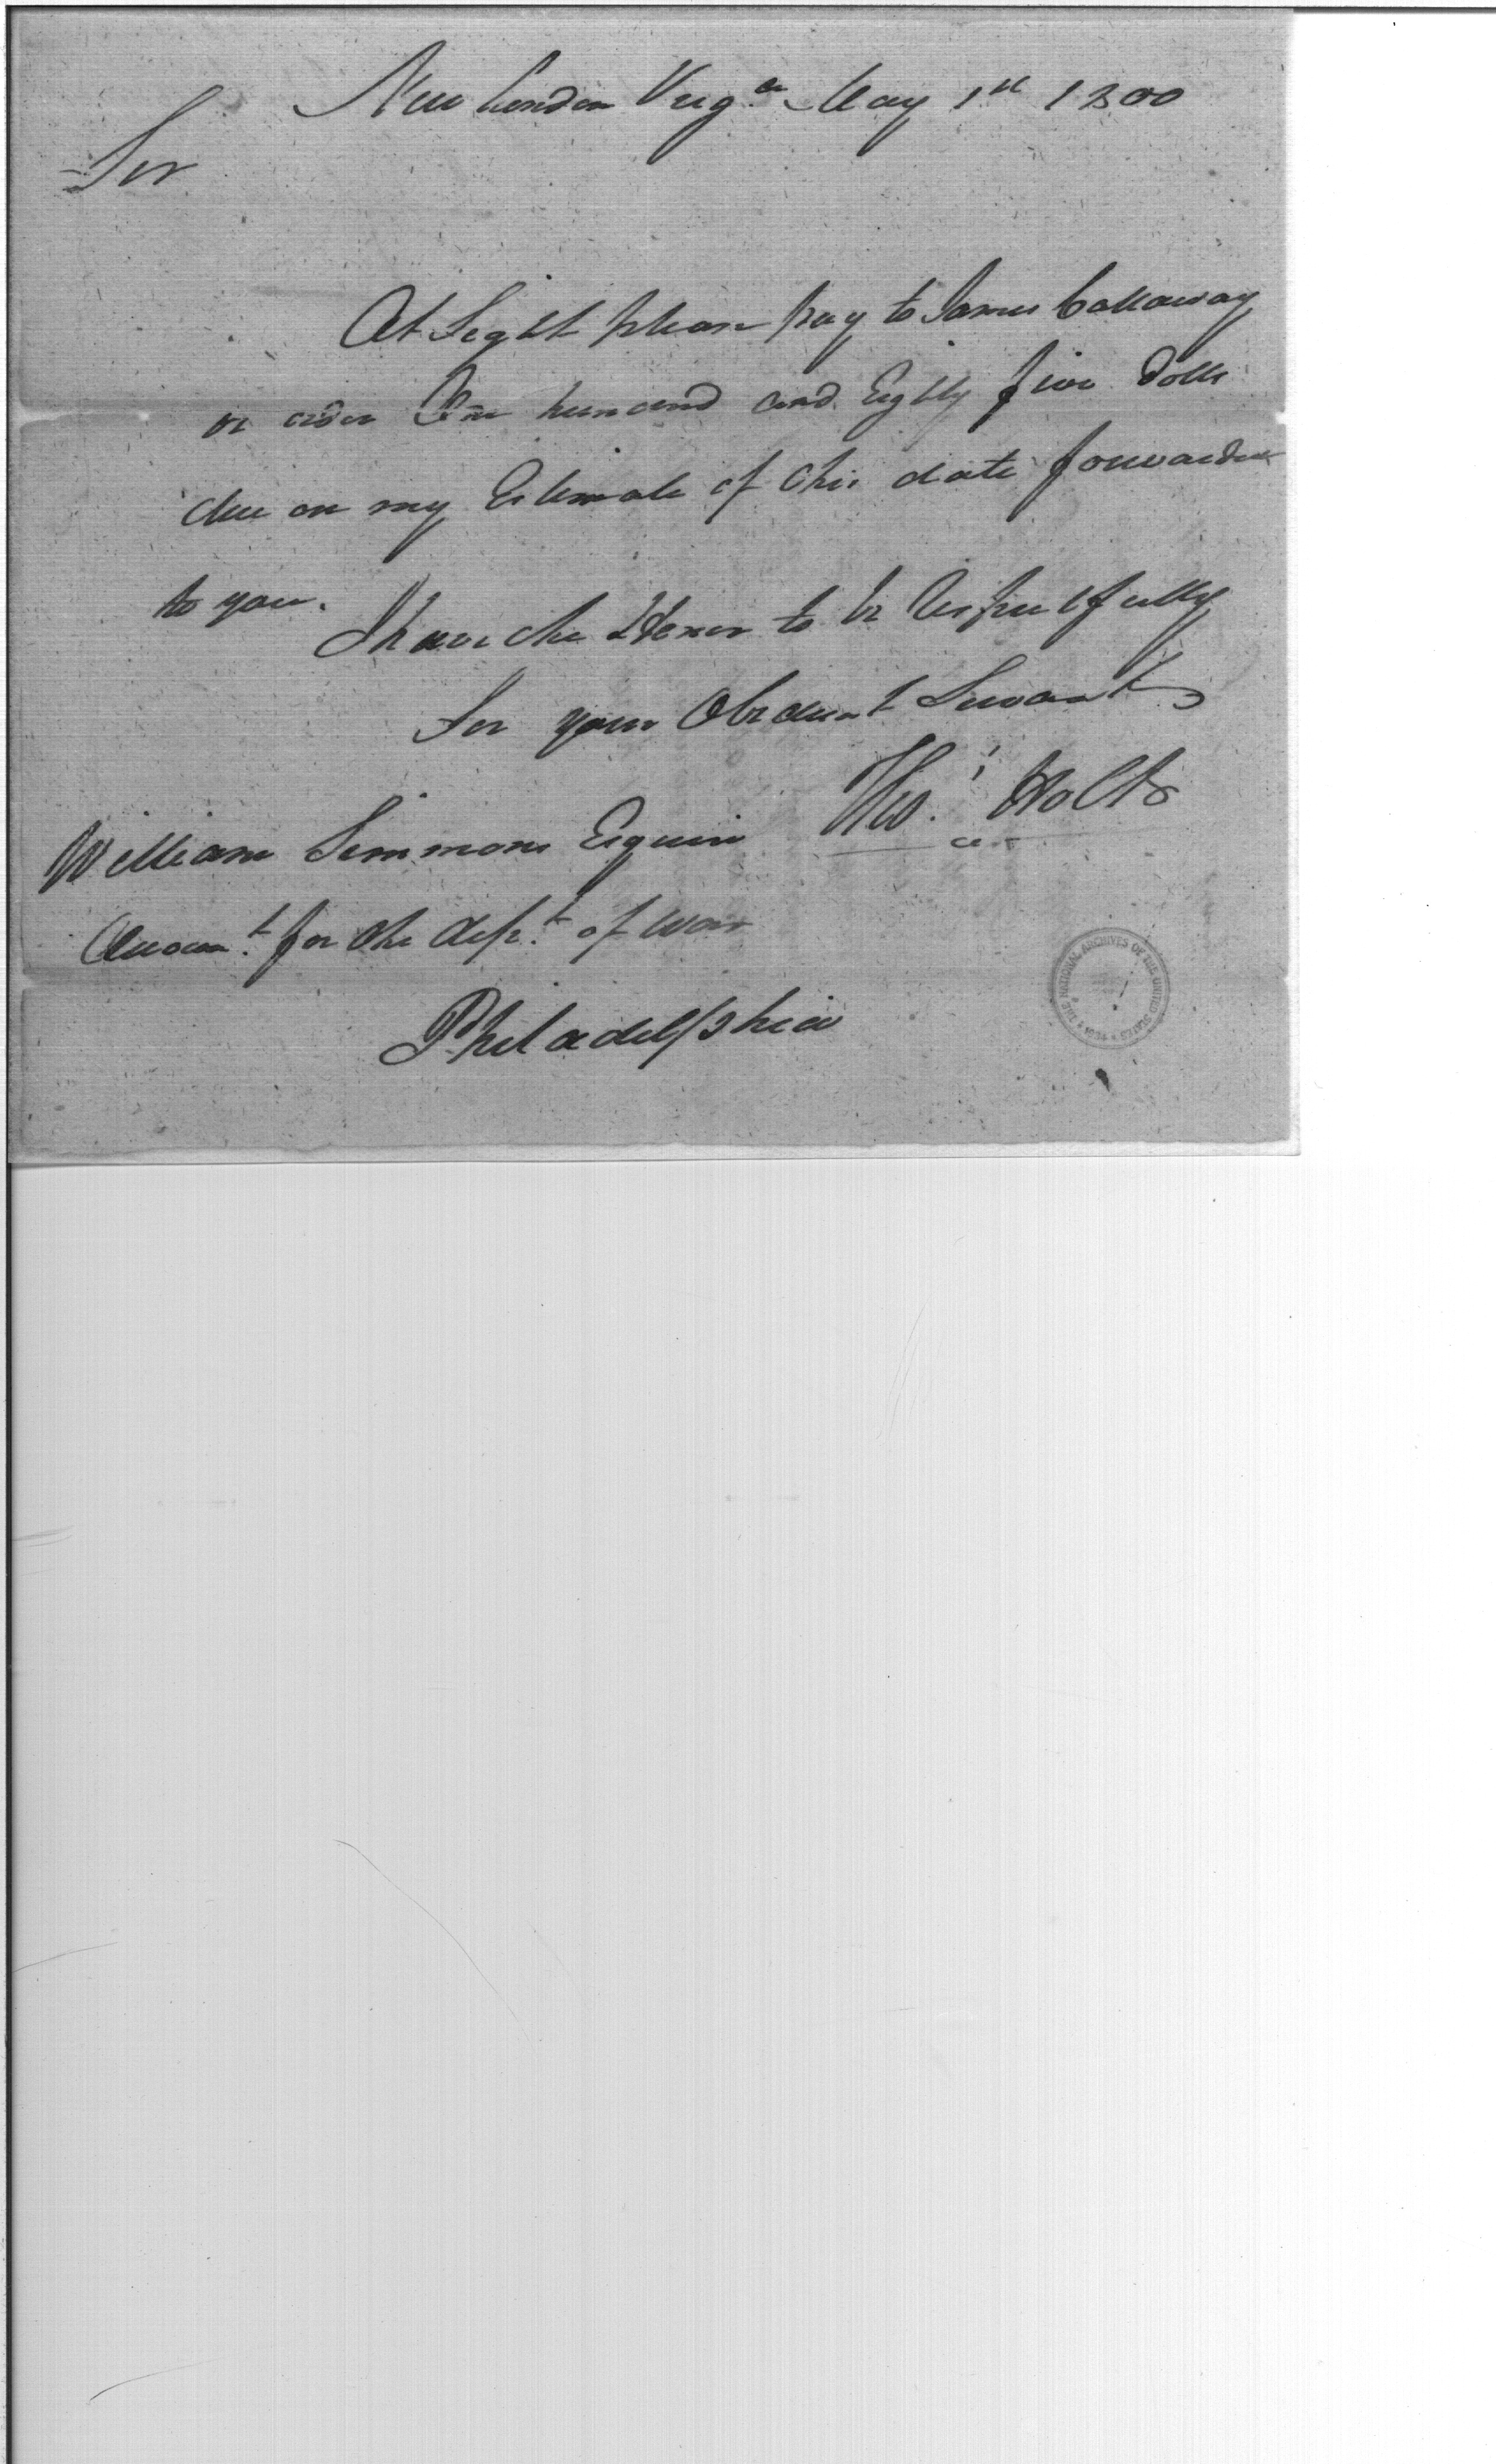 New London Virg.a May 1st 1800
Sir
At Sight please pay to James Callaway
or order One hundred and Eighty five Dolls
due on my Estimate of this date forwarded
to you.
I have the Honor to be Respectfully
Sir your Obedient Servant
Tho.s Holt
William Simmons Esquire
Accoun.t for the dep.t of War
Philadelphia
THE NATIONAL ARCHIVES OF THE UNITED STATES